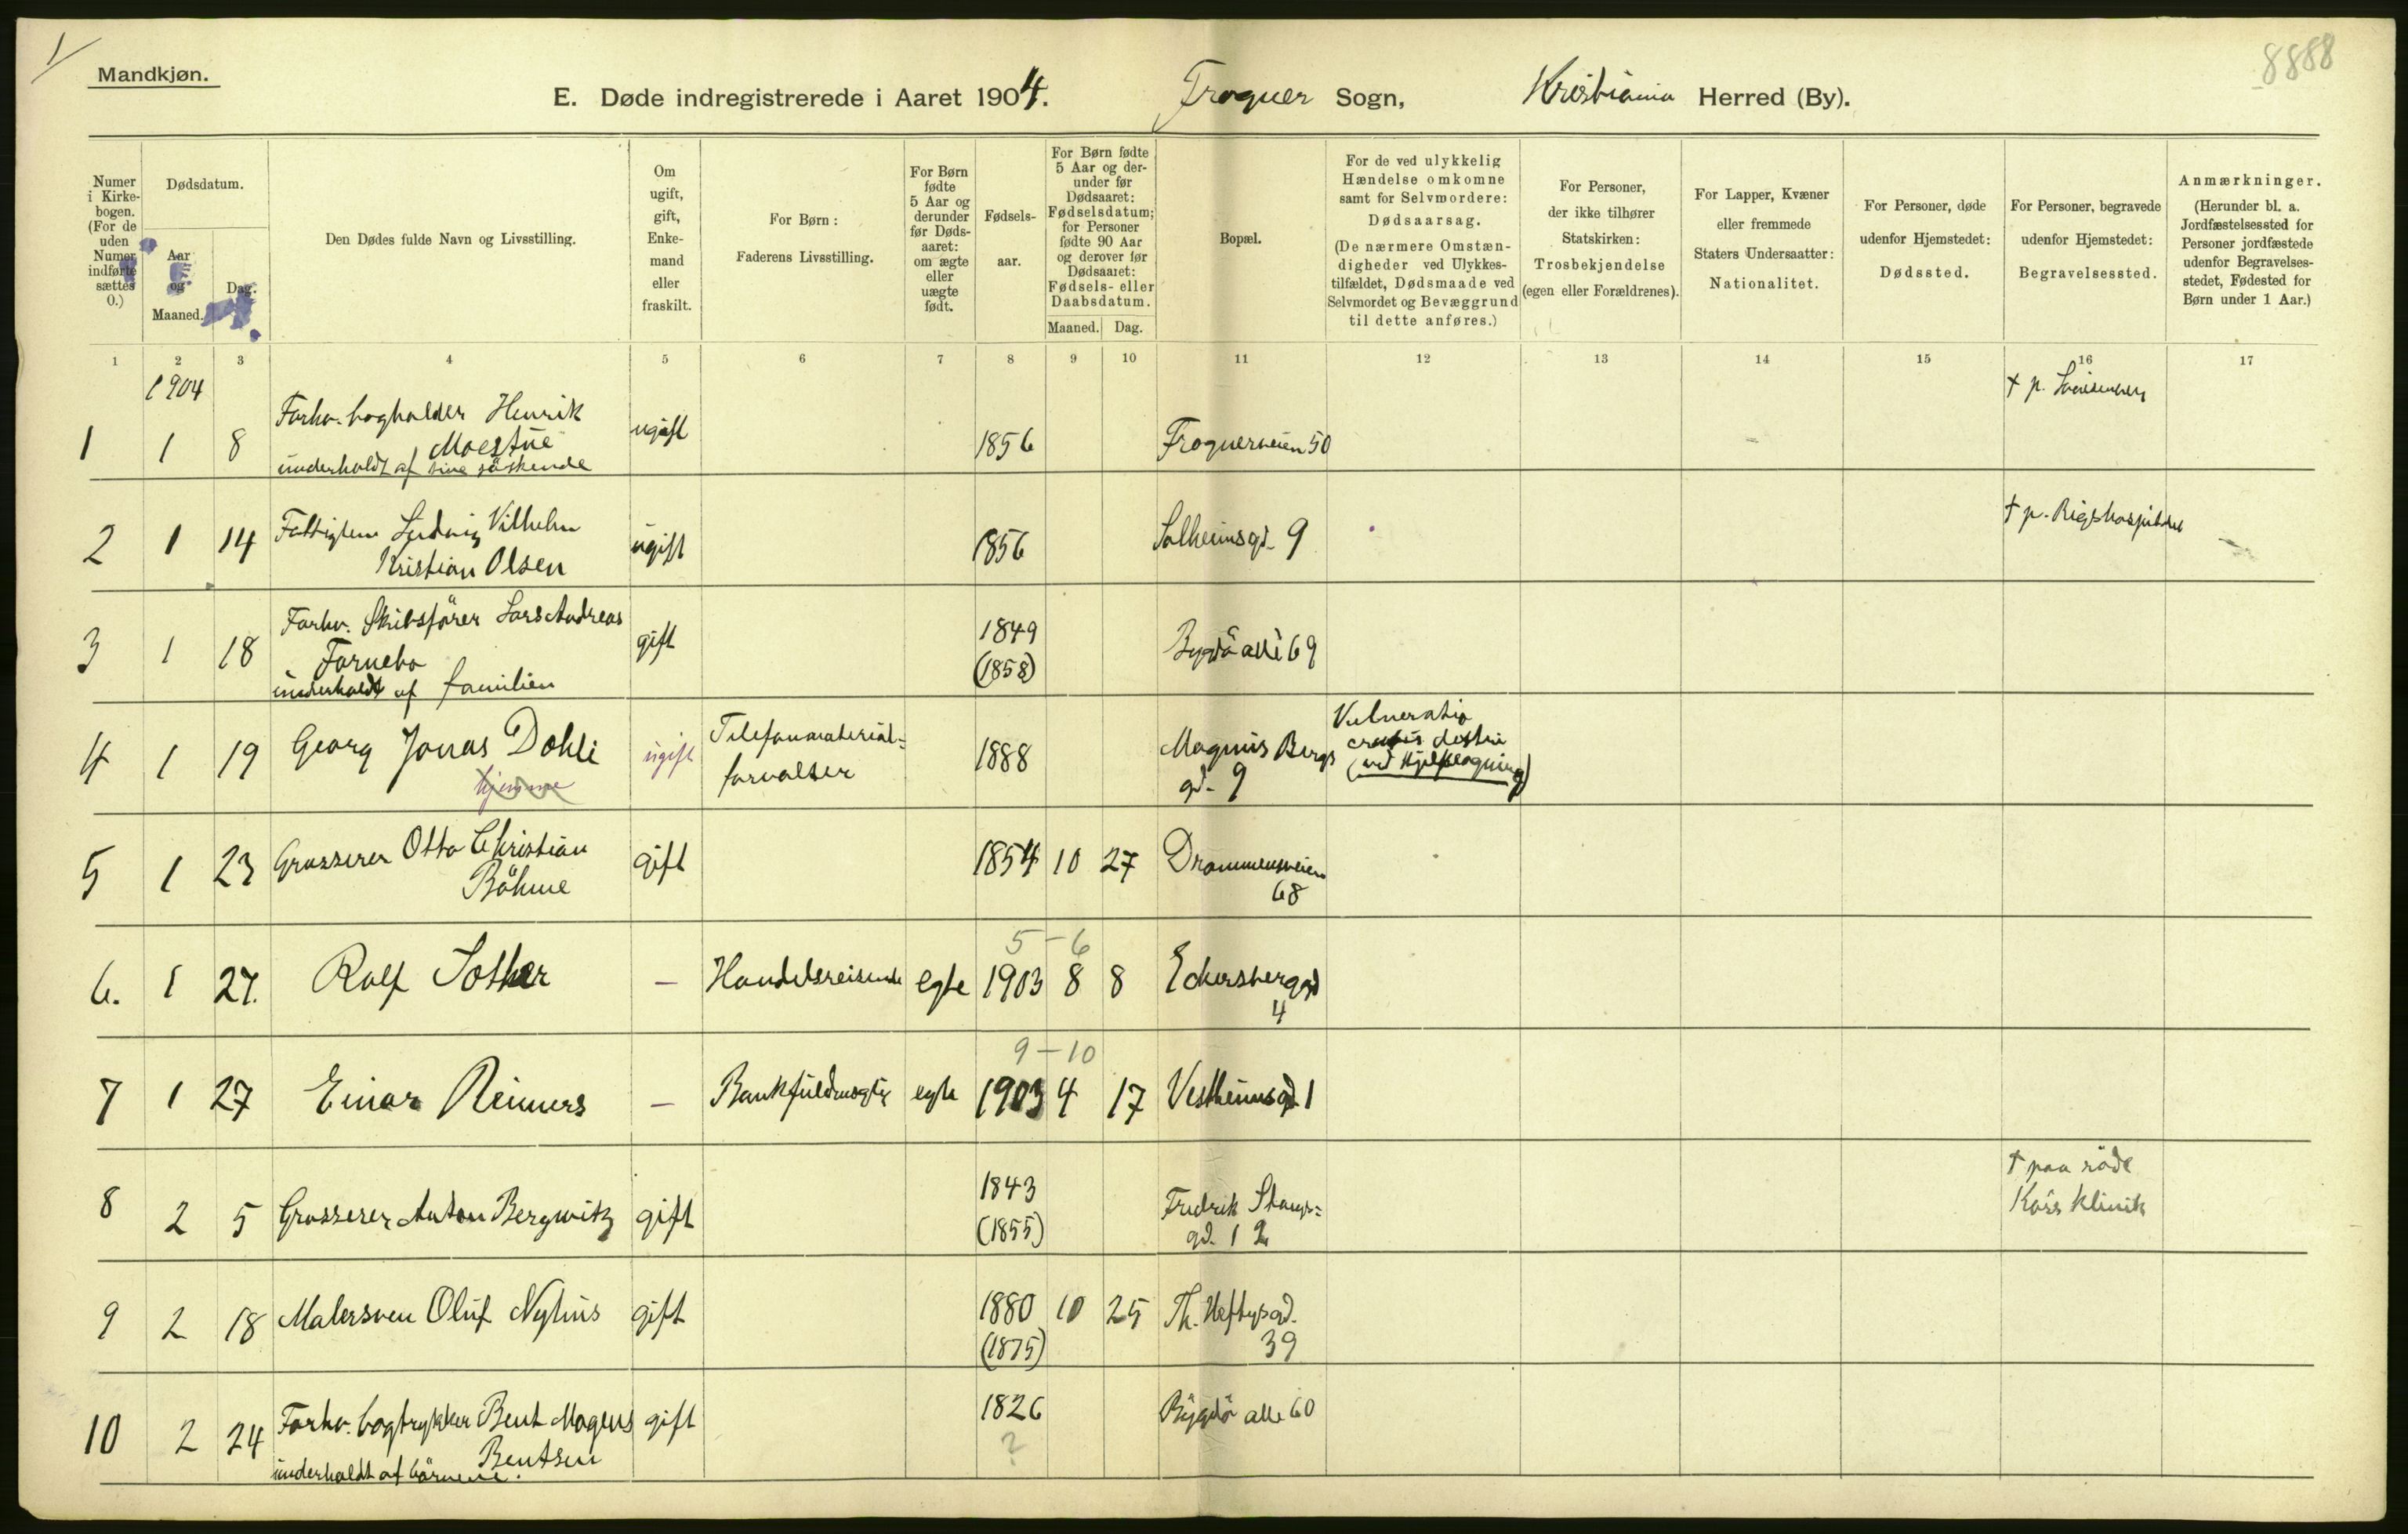 1/
Mandkjøn.
8888
E. Døde indregistrerede i Aaret 1904. Frogner Sogn, Kristiania Herred (By).
Numer i Kirkebogen. (For de uden Numer indførte sættes 0.)
Dødsdatum.
Aar og Maaned.
Dag.
Den Dødes fulde Navn og Livsstilling.
Om ugift, gift, Enkemand eller fraskilt.
For Børn: Faderens Livsstilling.
For Børn fødte 5 Aar og derunder før Dødsaaret: om ægte eller uægte født.
Fødselsaar.
For Børn fødte 5 Aar og derunder før Dødsaaret: Fødselsdatum; for Personer fødte 90 Aar og derover før Dødsaaret: Fødsels- eller Daabsdatum.
Maaned. Dag.
Bopæl.
For de ved ulykkelig Hændelse omkomne samt for Selvmordere: Dødsaarsag. (De nærmere Omstændigheder ved Ulykkestilfældet, Dødsmaade ved Selvmordet og Bevæggrund til dette anføres.)
For Personer, der ikke tilhører Statskirken: Trosbekjendelse (egen eller Forældrenes).
For Lapper, Kvæner eller fremmede Staters Undersaatter: Nationalitet.
For Personer, døde udenfor Hjemstedet: Dødssted.
For Personer, begravede udenfor Hjemstedet: Begravelsessted.
Anmærkninger. (Herunder bl. a. Jordfæstelsessted for Personer jordfæstede udenfor Begravelsesstedet, Fødested for Børn under 1 Aar.)
1 2 3 4 5 6 7 8 9 10 11 12 13 14 15 16 17
1904
1 1 8 Forhv. bogholder Henrik Moestue underholdt af sine söskende ugift 1856 Frognerveien 50 † p.
2 1 14 Fattiglem Ludvig Vilhelm Kristian Olsen ugift 1856 Solheimsgd. 9 † p. Rigshospitalet
3 1 18 Forhv. Skibsförer Lars Andreas Fornebo underholdt af familien gift 1849 (1858) Bygdö allé 69
4 1 19 Georg Jonas Dohli hjemme ugift Telefonmaterial=forvalter 1888 Magnus Bergs gd. 9 Vulneratio cruris dextri (ved Kjelkeagning)
5 1 23 Grosserer Otto Christian Böhme gift 1854 10 27 Drammensveien 68
5 - 6
6. 1 27. Rolf Sother — Handelsreisende egte 1903 8 8 Eckersbergsgd 4
9 - 10
7 1 27 Einar Reimers — Bankfuldmægtig egte 1903 4 17 Vestheimsgd. 1
8 2 5 Grosserer Anton Bergwitz gift 1843 (1855) Fredrik Stangs=gd. 12 † paa röde Kors Klinik
9 2 18 Malersven Oluf Nyhus gift 1880 (1875) 10 25 Th. Heftysgd. 39
10 2 24 Forhv. bogtrykker Bent Mogens Bentsen underholdt af börnene. gift 1826 ? Bygdö alle 60